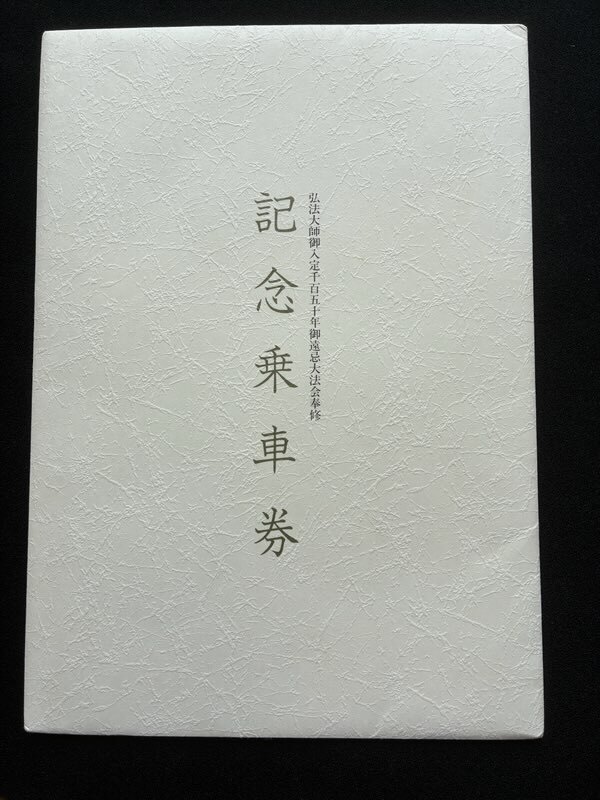 弘法大師御入定千百五十年御遠忌大法会奉修
記念乗車券